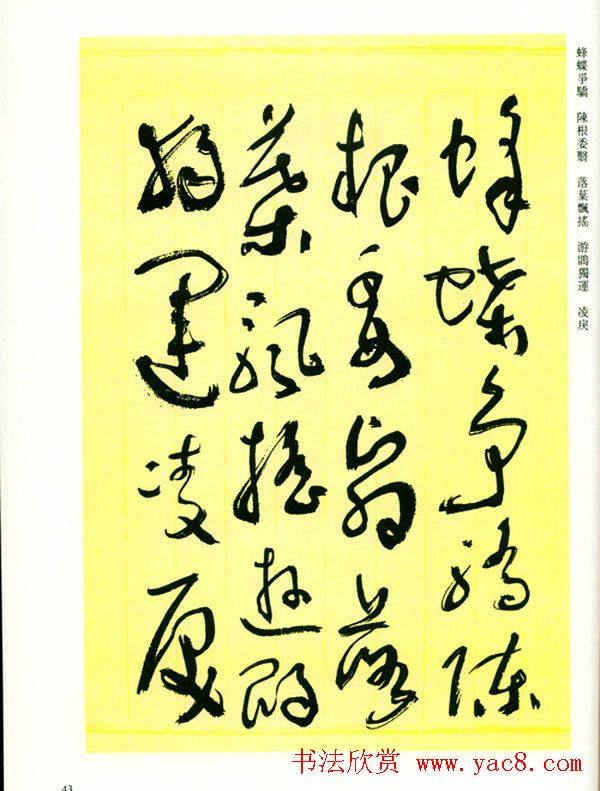 蜂蝶爭驕　陳根委翳　落葉飄搖　游鵾獨運　凌戾
蜂蝶爭驕陳
根委翳落
葉飄搖遊鵾
獨運凌戾
43
书法欣赏 www.yac8.com